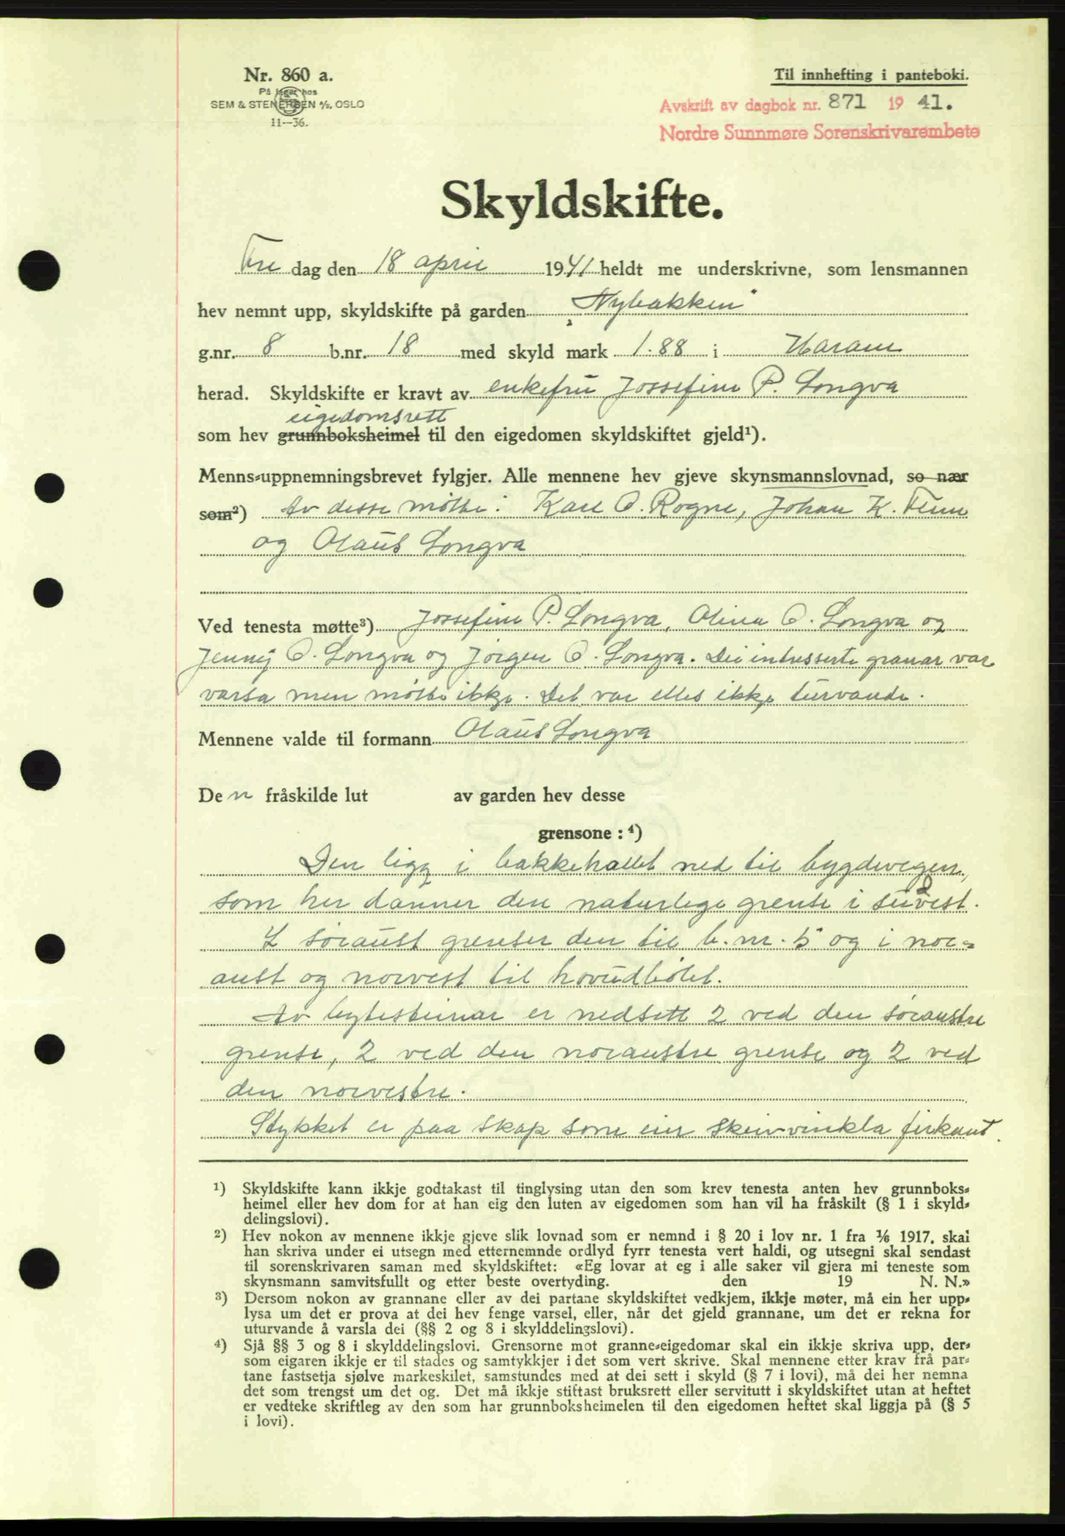 Nr. 860 a.
På lager hos
SEM & STENERSEN A/S, OSLO
11—36.
Til innhefting i panteboki.
Avskrift av dagbok nr. 871 1941.
Nordre Sunnmøre Sorenskrivarembete
Skyldskifte.
Fre dag den 18 april 1941 heldt me underskrivne, som lensmannen
hev nemnt upp, skyldskifte på garden „Nybakken"
g.nr. 8 b.nr. 18 med skyld mark 1.88 i Haram
herad. Skyldskifte er kravt av enkefru Jossefine P. Longva
eigedomsrett
som hev grunnboksheimel til den eigedomen skyldskiftet gjeld¹).
Menns-uppnemningsbrevet fylgjer. Alle mennene hev gjeve skynsmannslovnad, so nær
som²) Av desse møtte: Karl O. Rogne, Johan K.
og Olaus Longva
Ved tenesta møtte³) Jossefine P. Longva, Olina O. Longva og
Jenny O. Longva og Jørgen O. Longva. Dei intresserte granar var
varsla men møtte ikkje. Det var elles ikkje turvande.
Mennene valde til formann Olaus Longva
Den fråskilde lut av garden hev desse
grensone: ⁴)
Den ligg i bakkehallet ned til bygdevegen,
som her danner den naturlege grense i sudvest.
I søraust grenser den til b.nr. 5 og i nor-
aust og norvest til hovudbølet.
Av bytesteinar er nedsett 2 ved den søraustre
grense, 2 ved den noraustre grense og 2 ved
den norvestre.
Stykket er paa skap som ein skeivvinkla firkant.
¹) Skyldskifte kann ikkje godtakast til tinglysing utan den som krev tenesta anten hev grunnboks-
heimel eller hev dom for at han eig den luten av eigedomen som han vil ha fråskilt (§ 1 i skyld-
delingslovi).
²) Hev nokon av mennene ikkje gjeve slik lovnad som er nemnd i § 20 i lov nr. 1 fra ¹⁄₆ 1917, skal
han skriva under ei utsegn med etternemnde ordlyd fyrr tenesta vert haldi, og utsegni skal sendast
til sorenskrivaren saman med skyldskiftet: «Eg lovar at eg i alle saker vil gjera mi teneste som
skynsmann samvitsfullt og etter beste overtyding. den 19 N. N.»
³) Dersom nokon av grannane eller av dei partane skyldskiftet vedkjem, ikkje møter, må ein her upp-
lysa um det er prova at dei hev fenge varsel, eller, når det gjeld grannane, um det er rekna for
uturvande å varsla dei (§§ 2 og 8 i skylddelingslovi).
⁴) Sjå §§ 3 og 8 i skylddelingslovi. Grensorne mot granne-eigedomar skal ein ikkje skriva upp, der-
som eigaren ikkje er til stades og samtykkjer i det som vert skrive. Skal mennene etter krav frå par-
tane fastsetja sjølve markeskilet, samstundes med at dei sett i skyld (§ 7 i lovi), må dei her nemna
det som trengst um det og. Det må ikkje stiftast bruksrett eller servitutt i skyldskiftet utan at heftet
er vedteke skriftleg av den som har grunnboksheimelen til den eigedomen heftet skal liggja på (§ 5
i lovi).